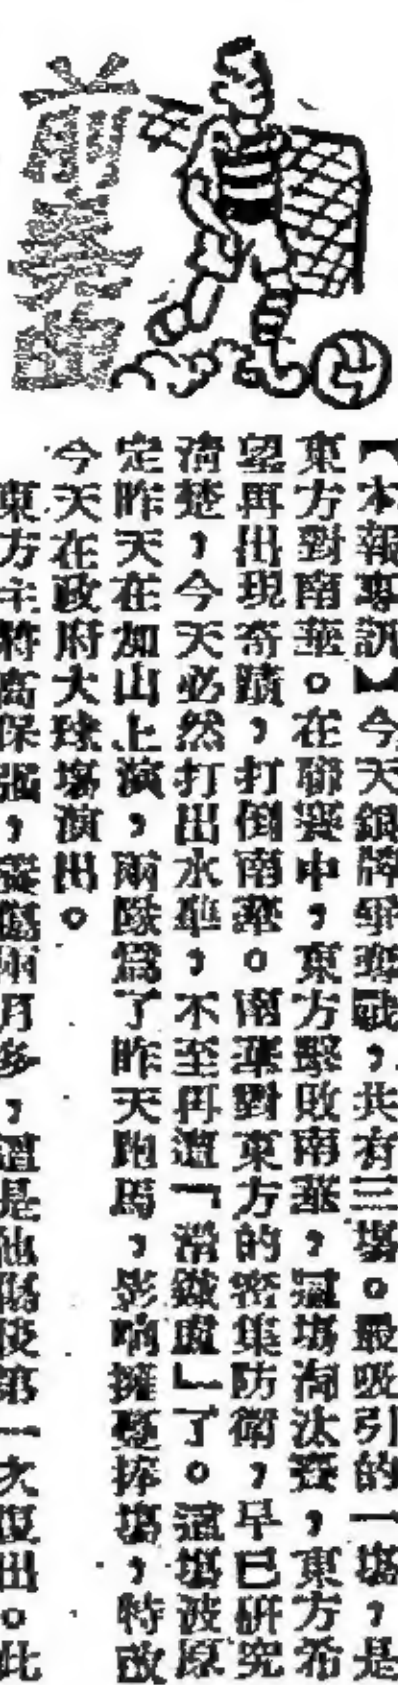 前奏曲
【本報專訊】今天銀牌爭奪戰，共有三場。最吸引的一場，是
東方對南華。在聯賽中，東方擊敗南華，這場淘汰賽，東方希
望再出現奇蹟，打倒南華。南華對東方的密集防衛，早已研究
清楚，今天必然打出水準，不至再遭「滑鐵盧」了。這場波原
定昨天在加山上演，兩隊為了昨天跑馬，影响擁躉捧場，特改
今天在政府大球場演出。
東方主將高保強，養傷兩月多，這是他傷後第一次復出。此